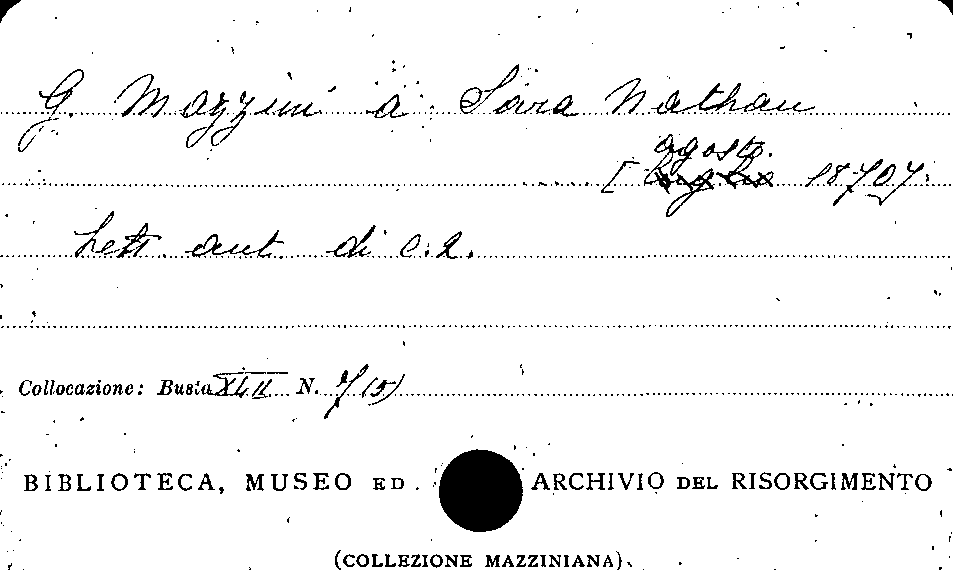 G. Mazzini a Sara Nathan
agosto.
[luglio 1870].
Lett. aut. di c. 2.
Collocazione: Busta XLII N. 7 (5)
BIBLIOTECA, MUSEO ED ARCHIVIO DEL RISORGIMENTO
(COLLEZIONE MAZZINIANA).